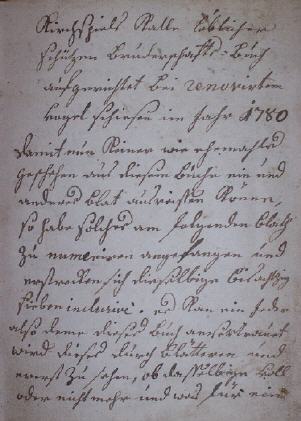 Kirchspiels Kalle löblicher
schützen Bruderschafts-Buch
aufgerichtet bei renovirtem
vogel schiesen im Jahr 1780
damit nun Keiner wie ehemahls
geschehen aus diesem buche ein und
anderes blat ausreissen Könne,
so habe solches am folgenden blath
zu numeriren angefangen und
erstrecken sich dieselbige bis
sieben inclusive. Kan ein Jeder
also deme dieses Buch anvertrauet
wird dieses durch blätteren und
zu sehen, ob dasselbige voll
oder nicht mehr und was für ein